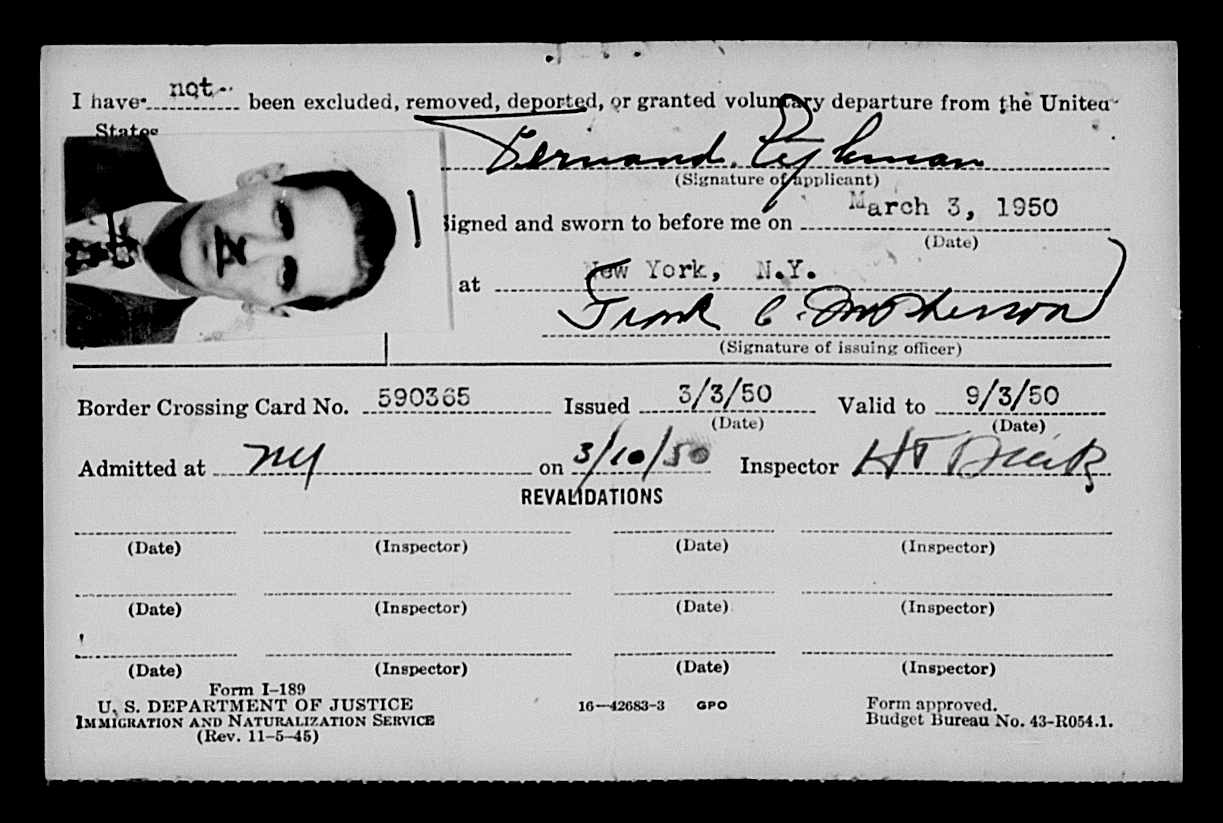 I have not been excluded, removed, deported, or granted voluntary departure from the United
States
Fernand Eykman
(Signature of applicant)
signed and sworn to before me on March 3, 1950
(Date)
at New York, N.Y.
Frank C. McPherson
(Signature of issuing officer)
Border Crossing Card No. 590365 Issued 3/3/50 Valid to 9/3/50
(Date) (Date)
Admitted at NY on 3/10/50 Inspector H T
REVALIDATIONS
(Date) (Inspector) (Date) (Inspector)
(Date) (Inspector) (Date) (Inspector)
(Date) (Inspector) (Date) (Inspector)
Form I-189
U. S. DEPARTMENT OF JUSTICE 16—42683-3 GPO Form approved.
IMMIGRATION AND NATURALIZATION SERVICE Budget Bureau No. 43-R054.1.
(Rev. 11-5-45)